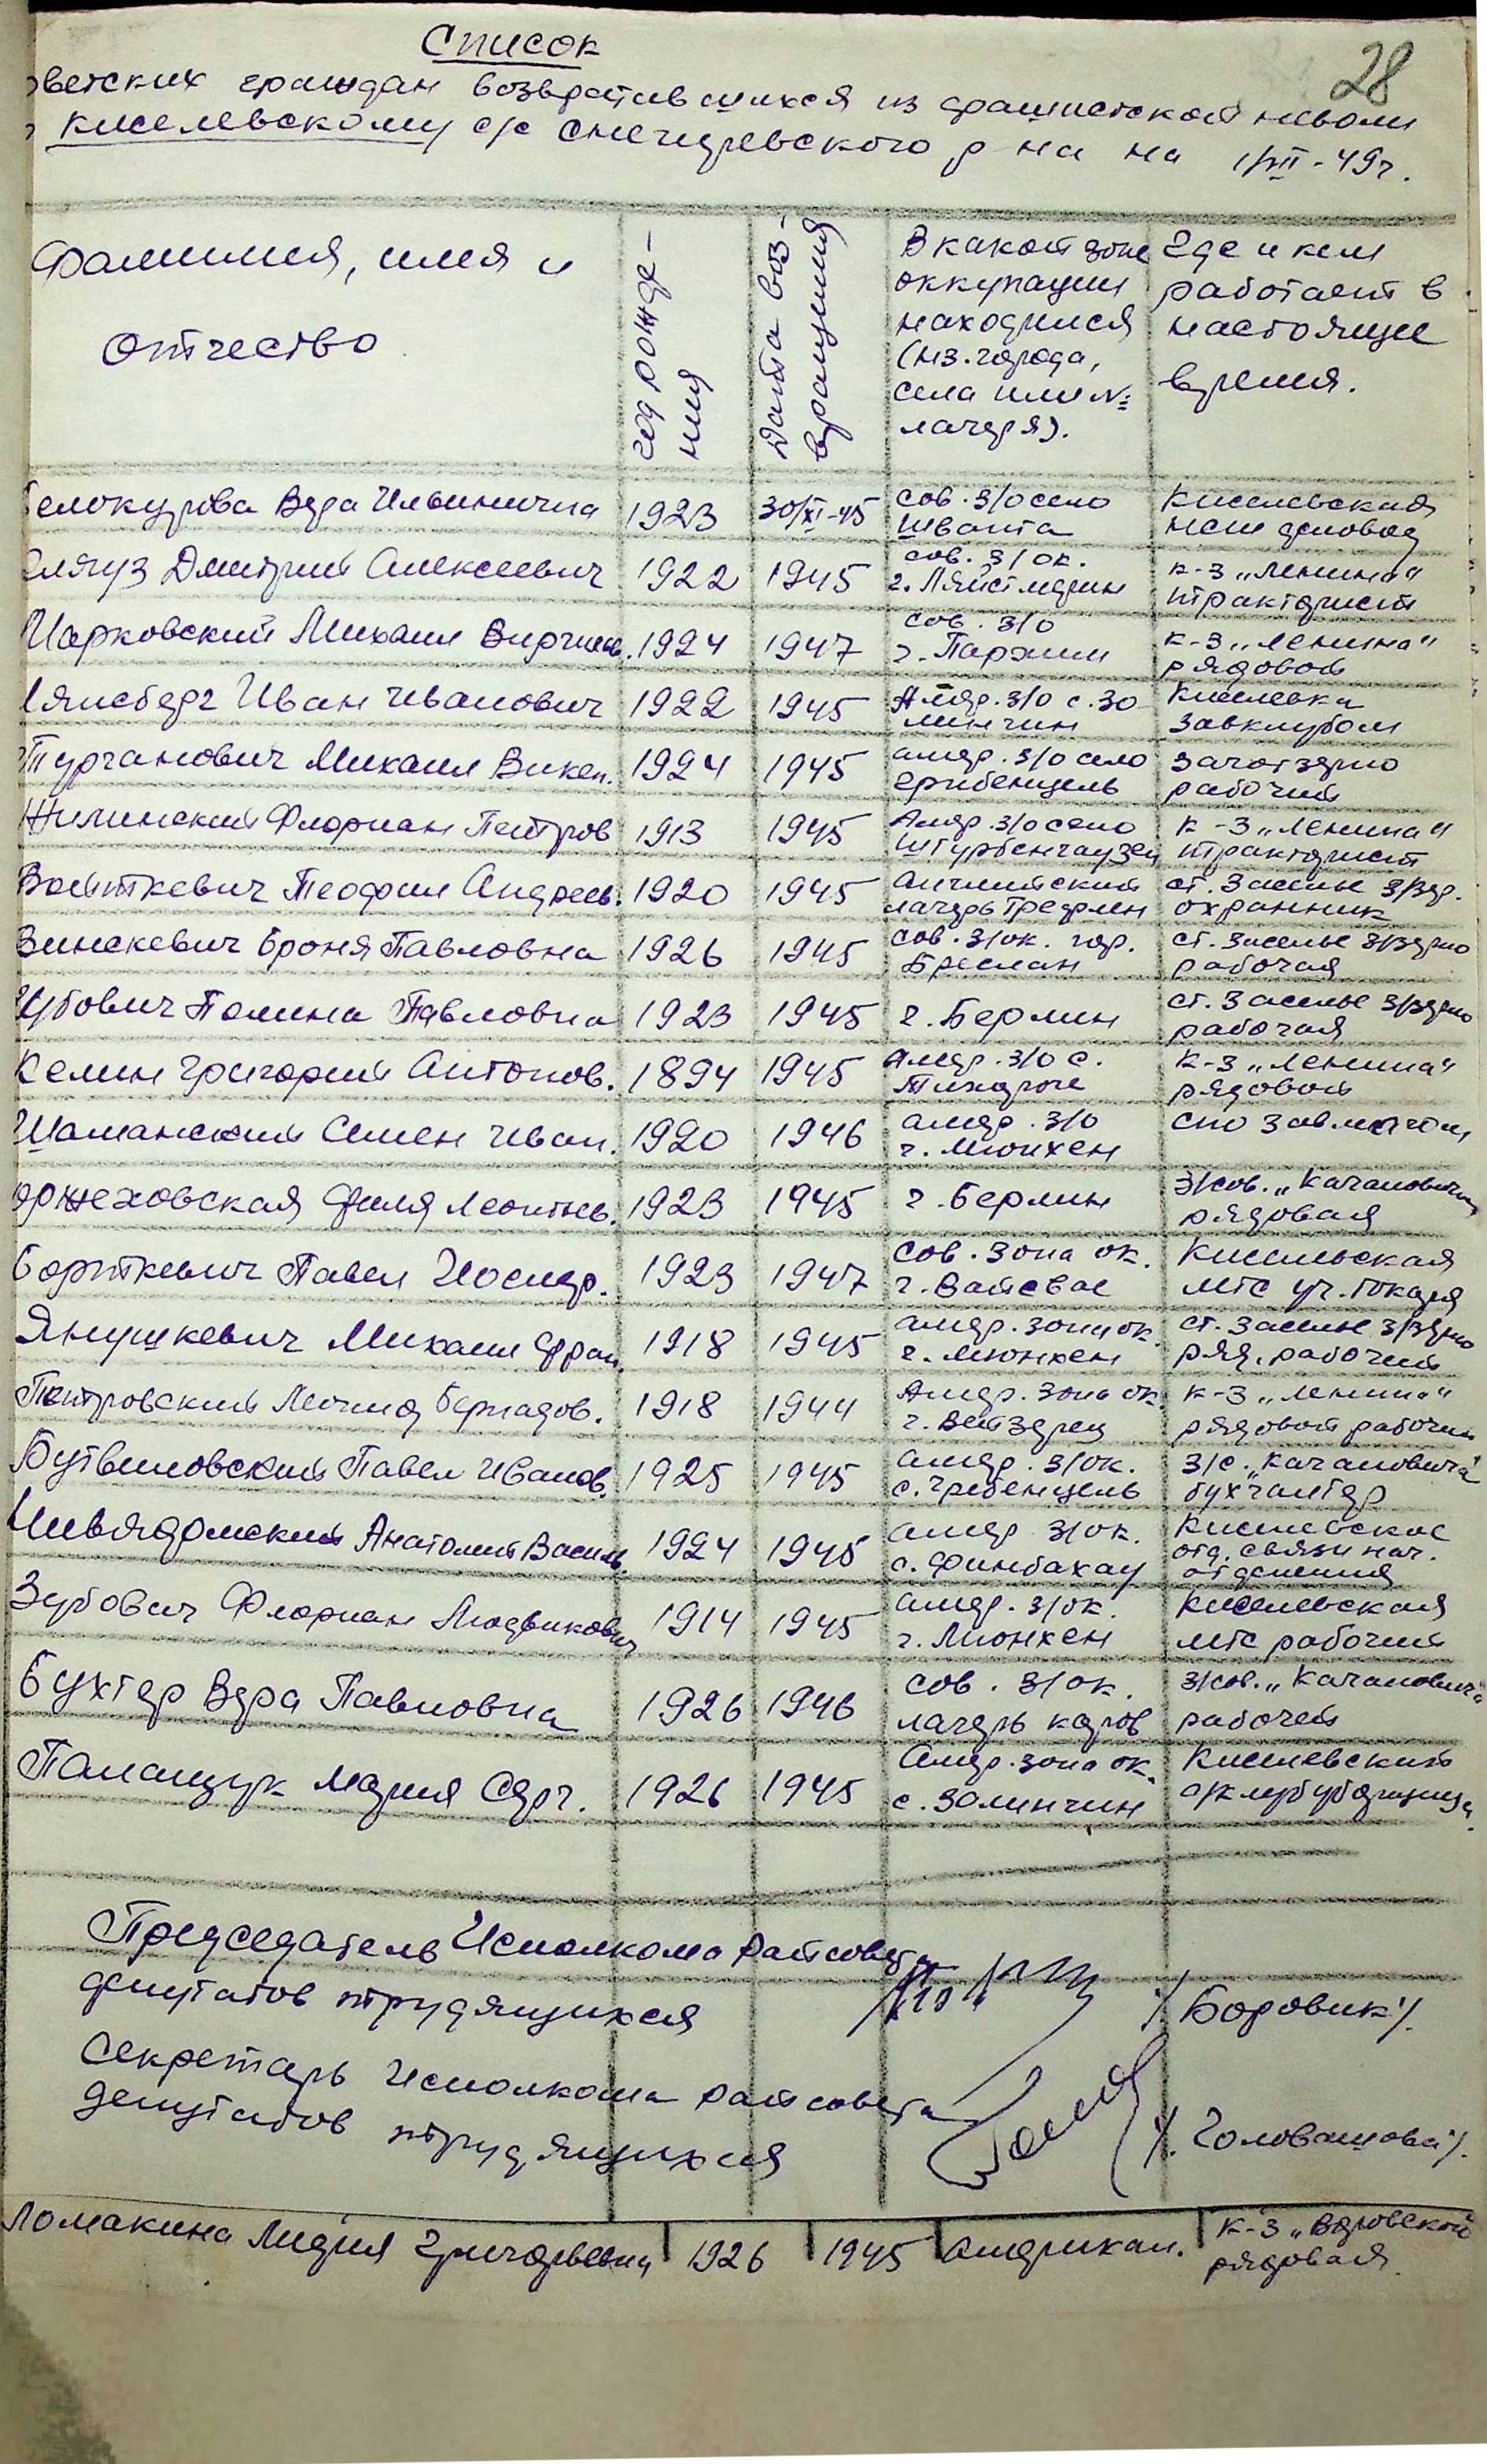 Список
28
оветских граждан возвратившихся из фашистской неволи
Киселевскому с/с Снегиревского р на на 1/VII-49г.
Фамилия, имя и
отчество
год рожде-
ния
Дата воз-
вращения
В какой зоне
оккупации
находился
(нз. города,
села или №
лагеря).
Где и кем
работает в
настоящее
время.
елокурова Вера Ильинична 1923 30/XI-45 сов. з/о село Киселевская
Шванта
Дмитрий Алексеевич 1922 1945 сов. з/ок. к-з „Ленина"
г. тракторист
Марковский Михаил 1924 1947 сов. з/о к-з „Ленина"
г. Пархим рядовой
Иван Иванович 1922 1945 Амер. з/о с. Зо- Киселевка
линчин завклубом
Турганович Михаил Викен. 1924 1945 амер. з/о село Заготзерно
рабочий
Жилинский Флориан Петров 1913 1945 Амер. з/о село к-з „Ленина"
тракторист
Войткевич Теофил Андреев. 1920 1945 Английский ст. Заселье з/зер.
лагерь охранник
Зинскевич Броня Павловна 1926 1945 сов. з/ок. гор. ст. Заселье з/зерно
Бреслан рабочая
Зубович Полина Павловна 1923 1945 г. Берлин ст. Заселье з/зерно
рабочая
Келин Григорий Антонов. 1894 1945 Амер. з/о с. к-з „Ленина"
рядовой
Шаманский Семен Иван. 1920 1946 амер. з/о
г. Мюнхен
оржеховская Филя Леонтьев. 1923 1945 г. Берлин з/сов. „Кагановича
рядовая
Борткевич Павел Иосифр. 1923 1947 сов. зона ок. Кисельская
г. МТС уч. токаря
Янушкевич Михаил Фран. 1918 1945 амер. зона ок. ст. Заселье з/зерно
г. Мюнхен ряд. рабочий
Петровский Леонид Бернадов. 1918 1944 Амер. зона ок. к-з „Ленина"
г. рядовой рабочий
Бутвиловский Павел Иванов. 1925 1945 амер. з/ок. з/с. „Кагановича"
с. Грибенцель бухгалтер
Анатолий Василь. 1924 1945 амер. з/ок. Киселевское
с. Финбахау отд. связи нач.
отделения
Зубович Флориан Людвикович 1914 1945 амер. з/ок. Киселевская
г. Мюнхен мтс рабочий
Бухтер Вера Павловна 1926 1946 сов. з/ок. з/сов. „Кагановича"
лагерь рабочей
Паламарчук Мария Серг. 1926 1945 Амер. зона ок. Киселевский
с. Золинчин
Председатель Исполкома райсовета
депутатов трудящихся /Боровик/.
Секретарь Исполкома райсовета
депутатов трудящихся /Головашова/.
Ломакина Лидия Григорьевна 1926 1945 Американ. к-з
рядовая